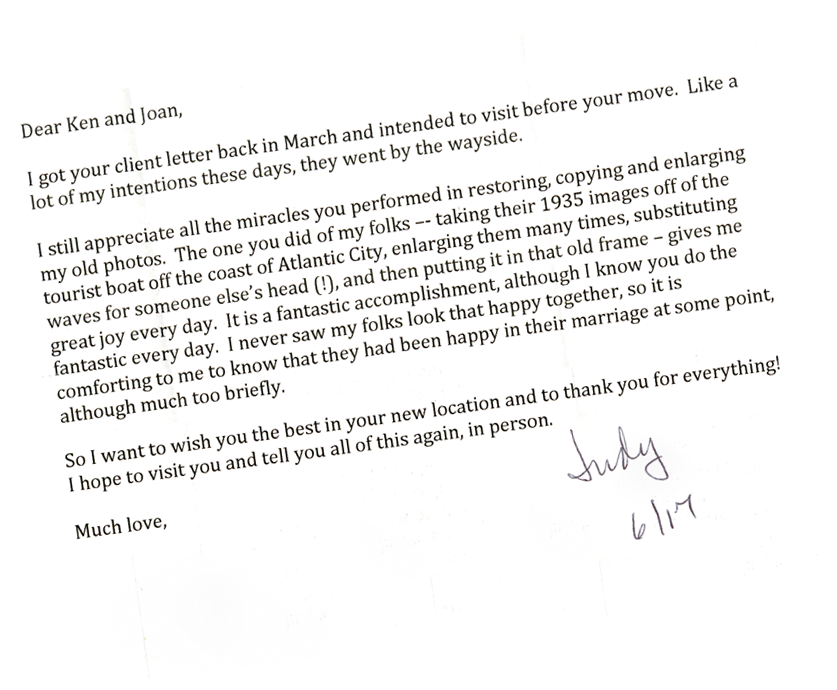 Dear Ken and Joan,
I got your client letter back in March and intended to visit before your move.  Like a
lot of my intentions these days, they went by the wayside.
I still appreciate all the miracles you performed in restoring, copying and enlarging
my old photos.  The one you did of my folks –- taking their 1935 images off of the
tourist boat off the coast of Atlantic City, enlarging them many times, substituting
waves for someone else’s head (!), and then putting it in that old frame – gives me
great joy every day.  It is a fantastic accomplishment, although I know you do the
fantastic every day.  I never saw my folks look that happy together, so it is
comforting to me to know that they had been happy in their marriage at some point,
although much too briefly.
So I want to wish you the best in your new location and to thank you for everything!
I hope to visit you and tell you all of this again, in person.
Much love,
Judy
6/17